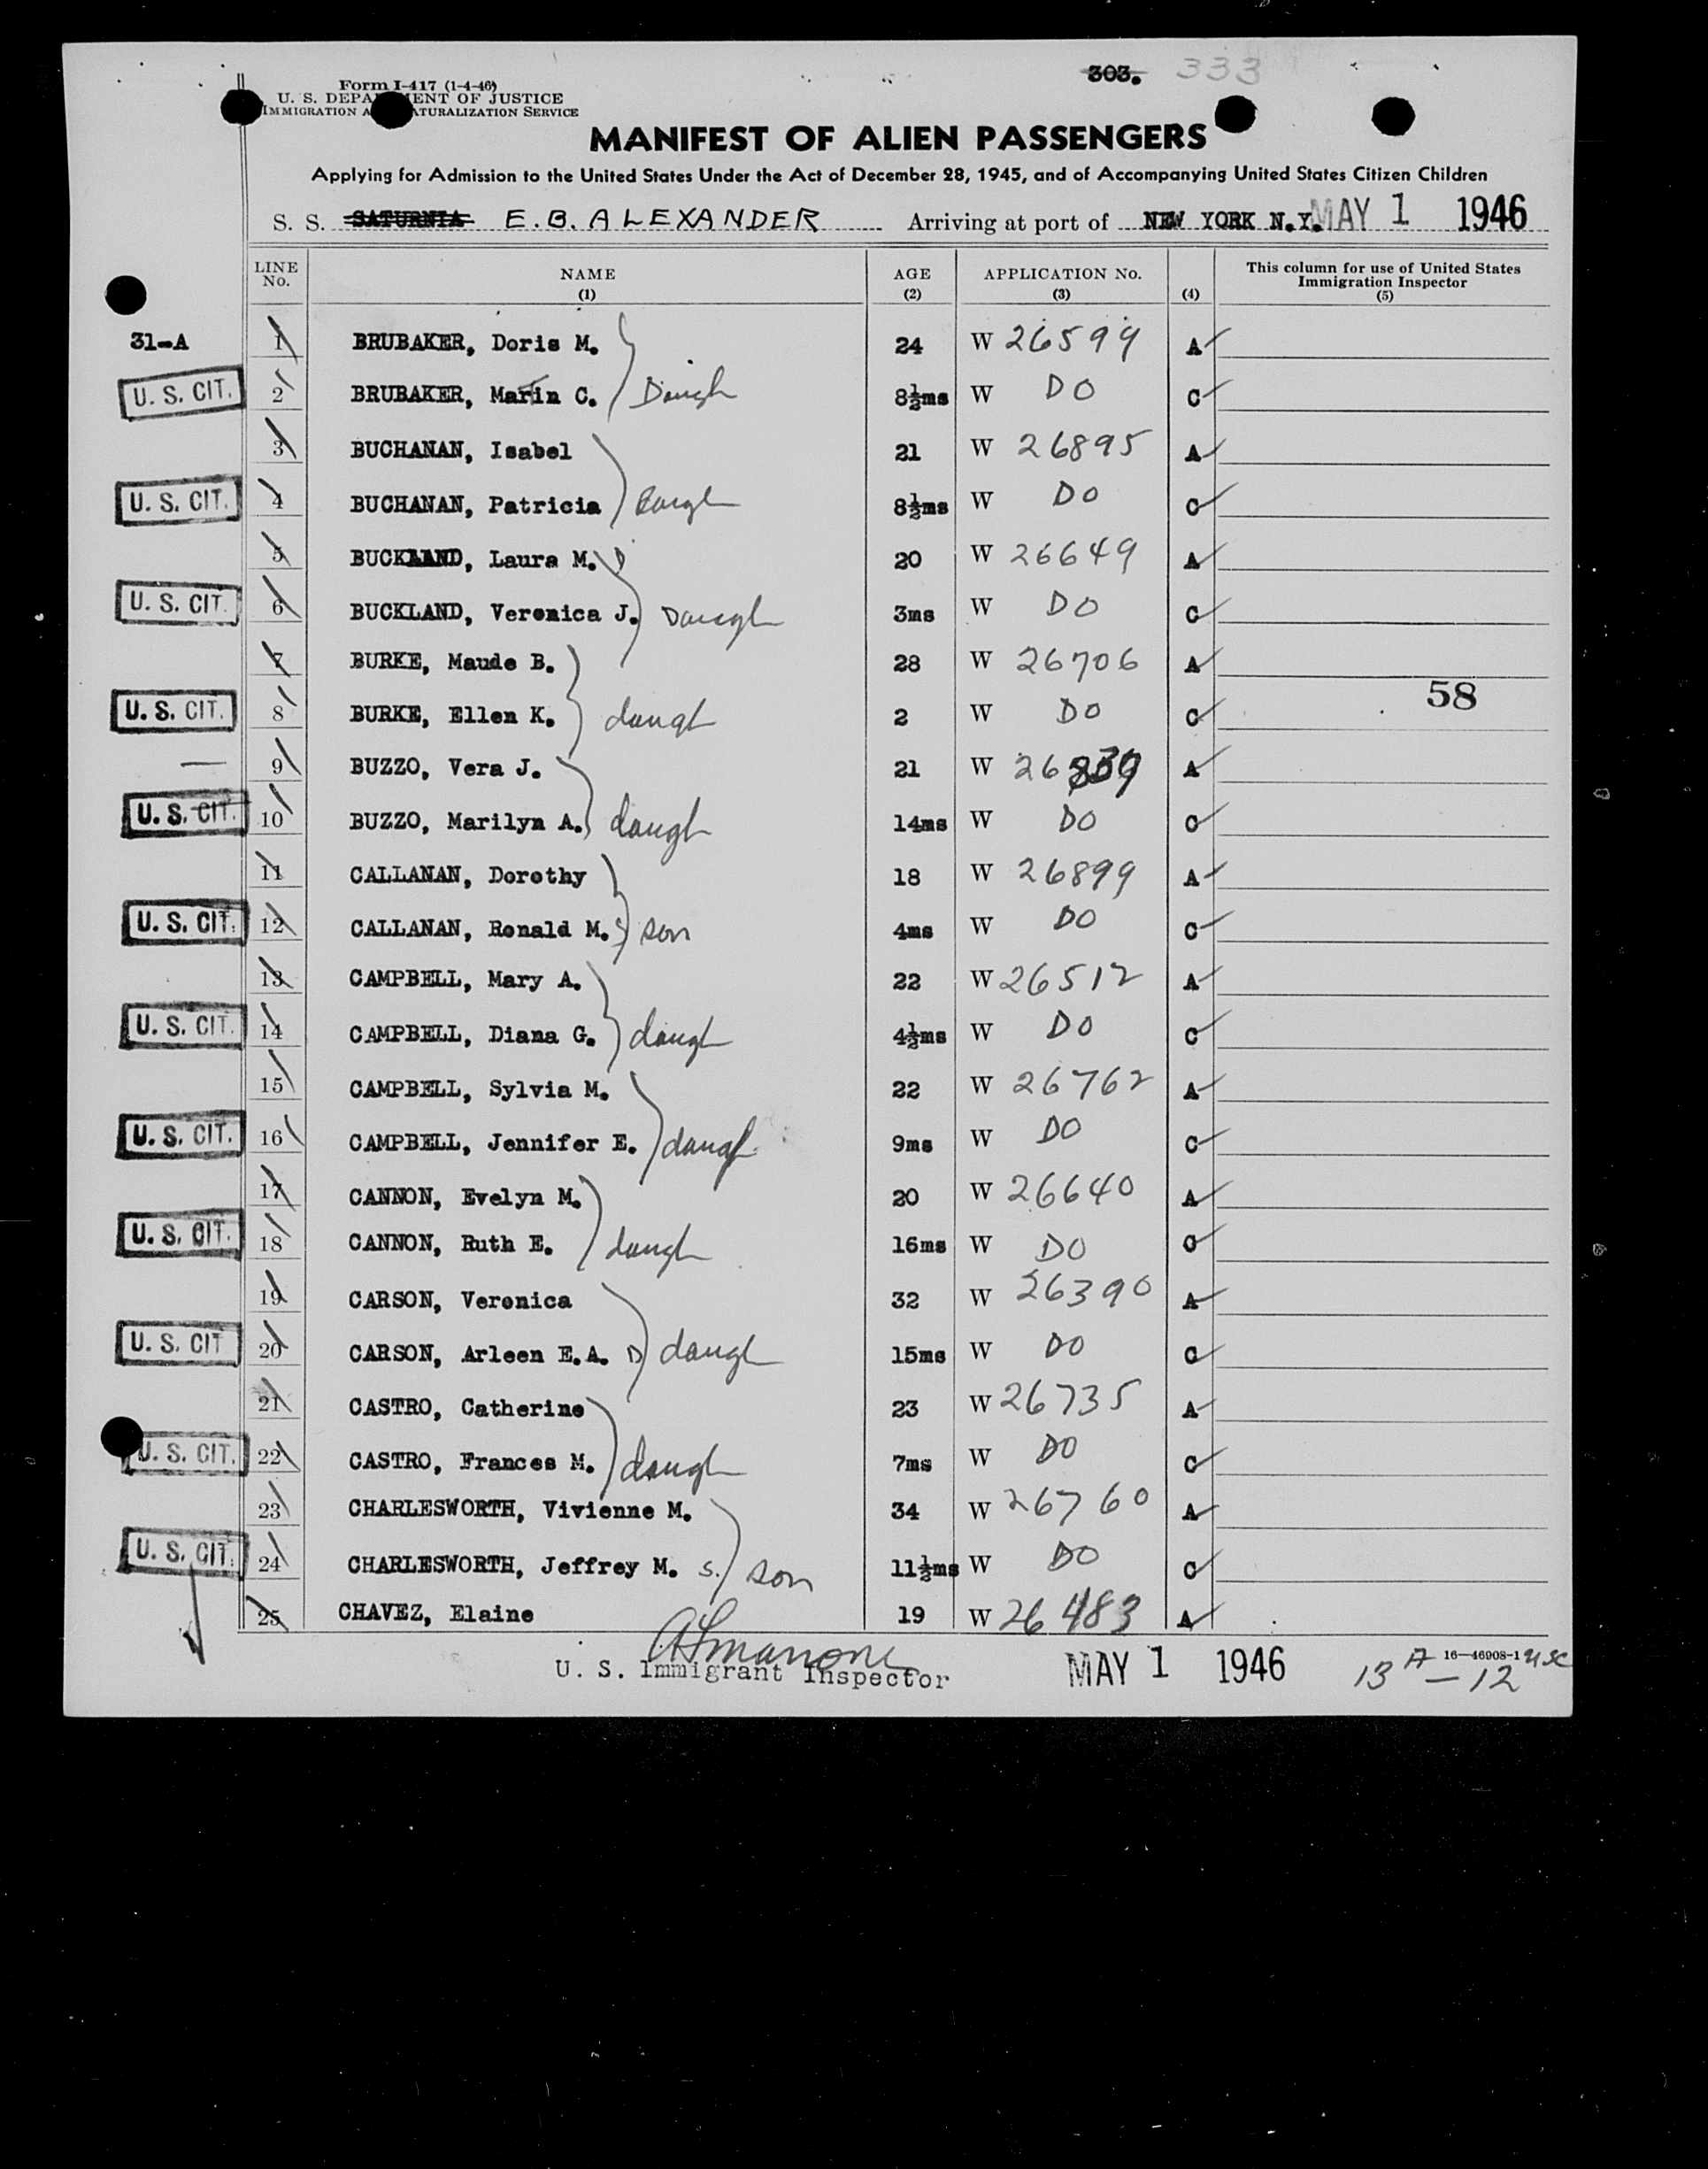 303. 333
Form I-417 (1-4-46)
U. S. DEPARTMENT OF JUSTICE
IMMIGRATION AND NATURALIZATION SERVICE
MANIFEST OF ALIEN PASSENGERS
Applying for Admission to the United States Under the Act of December 28, 1945, and of Accompanying United States Citizen Children
S. S. SATURNIA E. B. ALEXANDER Arriving at port of NEW YORK N.Y. MAY 1 1946
LINE No. NAME (1) AGE (2) APPLICATION No. (3) (4) This column for use of United States Immigration Inspector (5)
31-A 1 BRUBAKER, Doris M. 24 W 26599 A
U. S. CIT. 2 BRUBAKER, Marin C. Daugh 8½ms W DO C
3 BUCHANAN, Isabel 21 W 26895 A
U. S. CIT. 4 BUCHANAN, Patricia Daugh 8½ms W DO C
5 BUCKLAND, Laura M. 20 W 26649 A
U. S. CIT. 6 BUCKLAND, Veronica J. Daugh 3ms W DO C
7 BURKE, Maude B. 28 W 26706 A
58
U. S. CIT. 8 BURKE, Ellen K. daugh 2 W DO C
9 BUZZO, Vera J. 21 W A
U. S. CIT. 10 BUZZO, Marilyn A. daugh 14ms W DO C
11 CALLANAN, Dorothy 18 W 26899 A
U. S. CIT. 12 CALLANAN, Ronald M. son 4ms W DO C
13 CAMPBELL, Mary A. 22 W 26512 A
U. S. CIT. 14 CAMPBELL, Diana G. daugh 4½ms W DO C
15 CAMPBELL, Sylvia M. 22 W 26762 A
U. S. CIT. 16 CAMPBELL, Jennifer E. daugh 9ms W DO C
17 CANNON, Evelyn M. 20 W 26640 A
U. S. CIT. 18 CANNON, Ruth E. daugh 16ms W DO C
19 CARSON, Veronica 32 W 26390 A
U. S. CIT 20 CARSON, Arleen E.A. D daugh 15ms W DO C
21 CASTRO, Catherine 23 W 26735 A
U. S. CIT. 22 CASTRO, Frances M. daugh 7ms W DO C
23 CHARLESWORTH, Vivienne M. 34 W 26760 A
U. S. CIT. 24 CHARLESWORTH, Jeffrey M. S. son 11½ms W DO C
25 CHAVEZ, Elaine 19 W 26483 A
U. S. Immigrant Inspector MAY 1 1946 16—46908-1
13 A — 12 USC